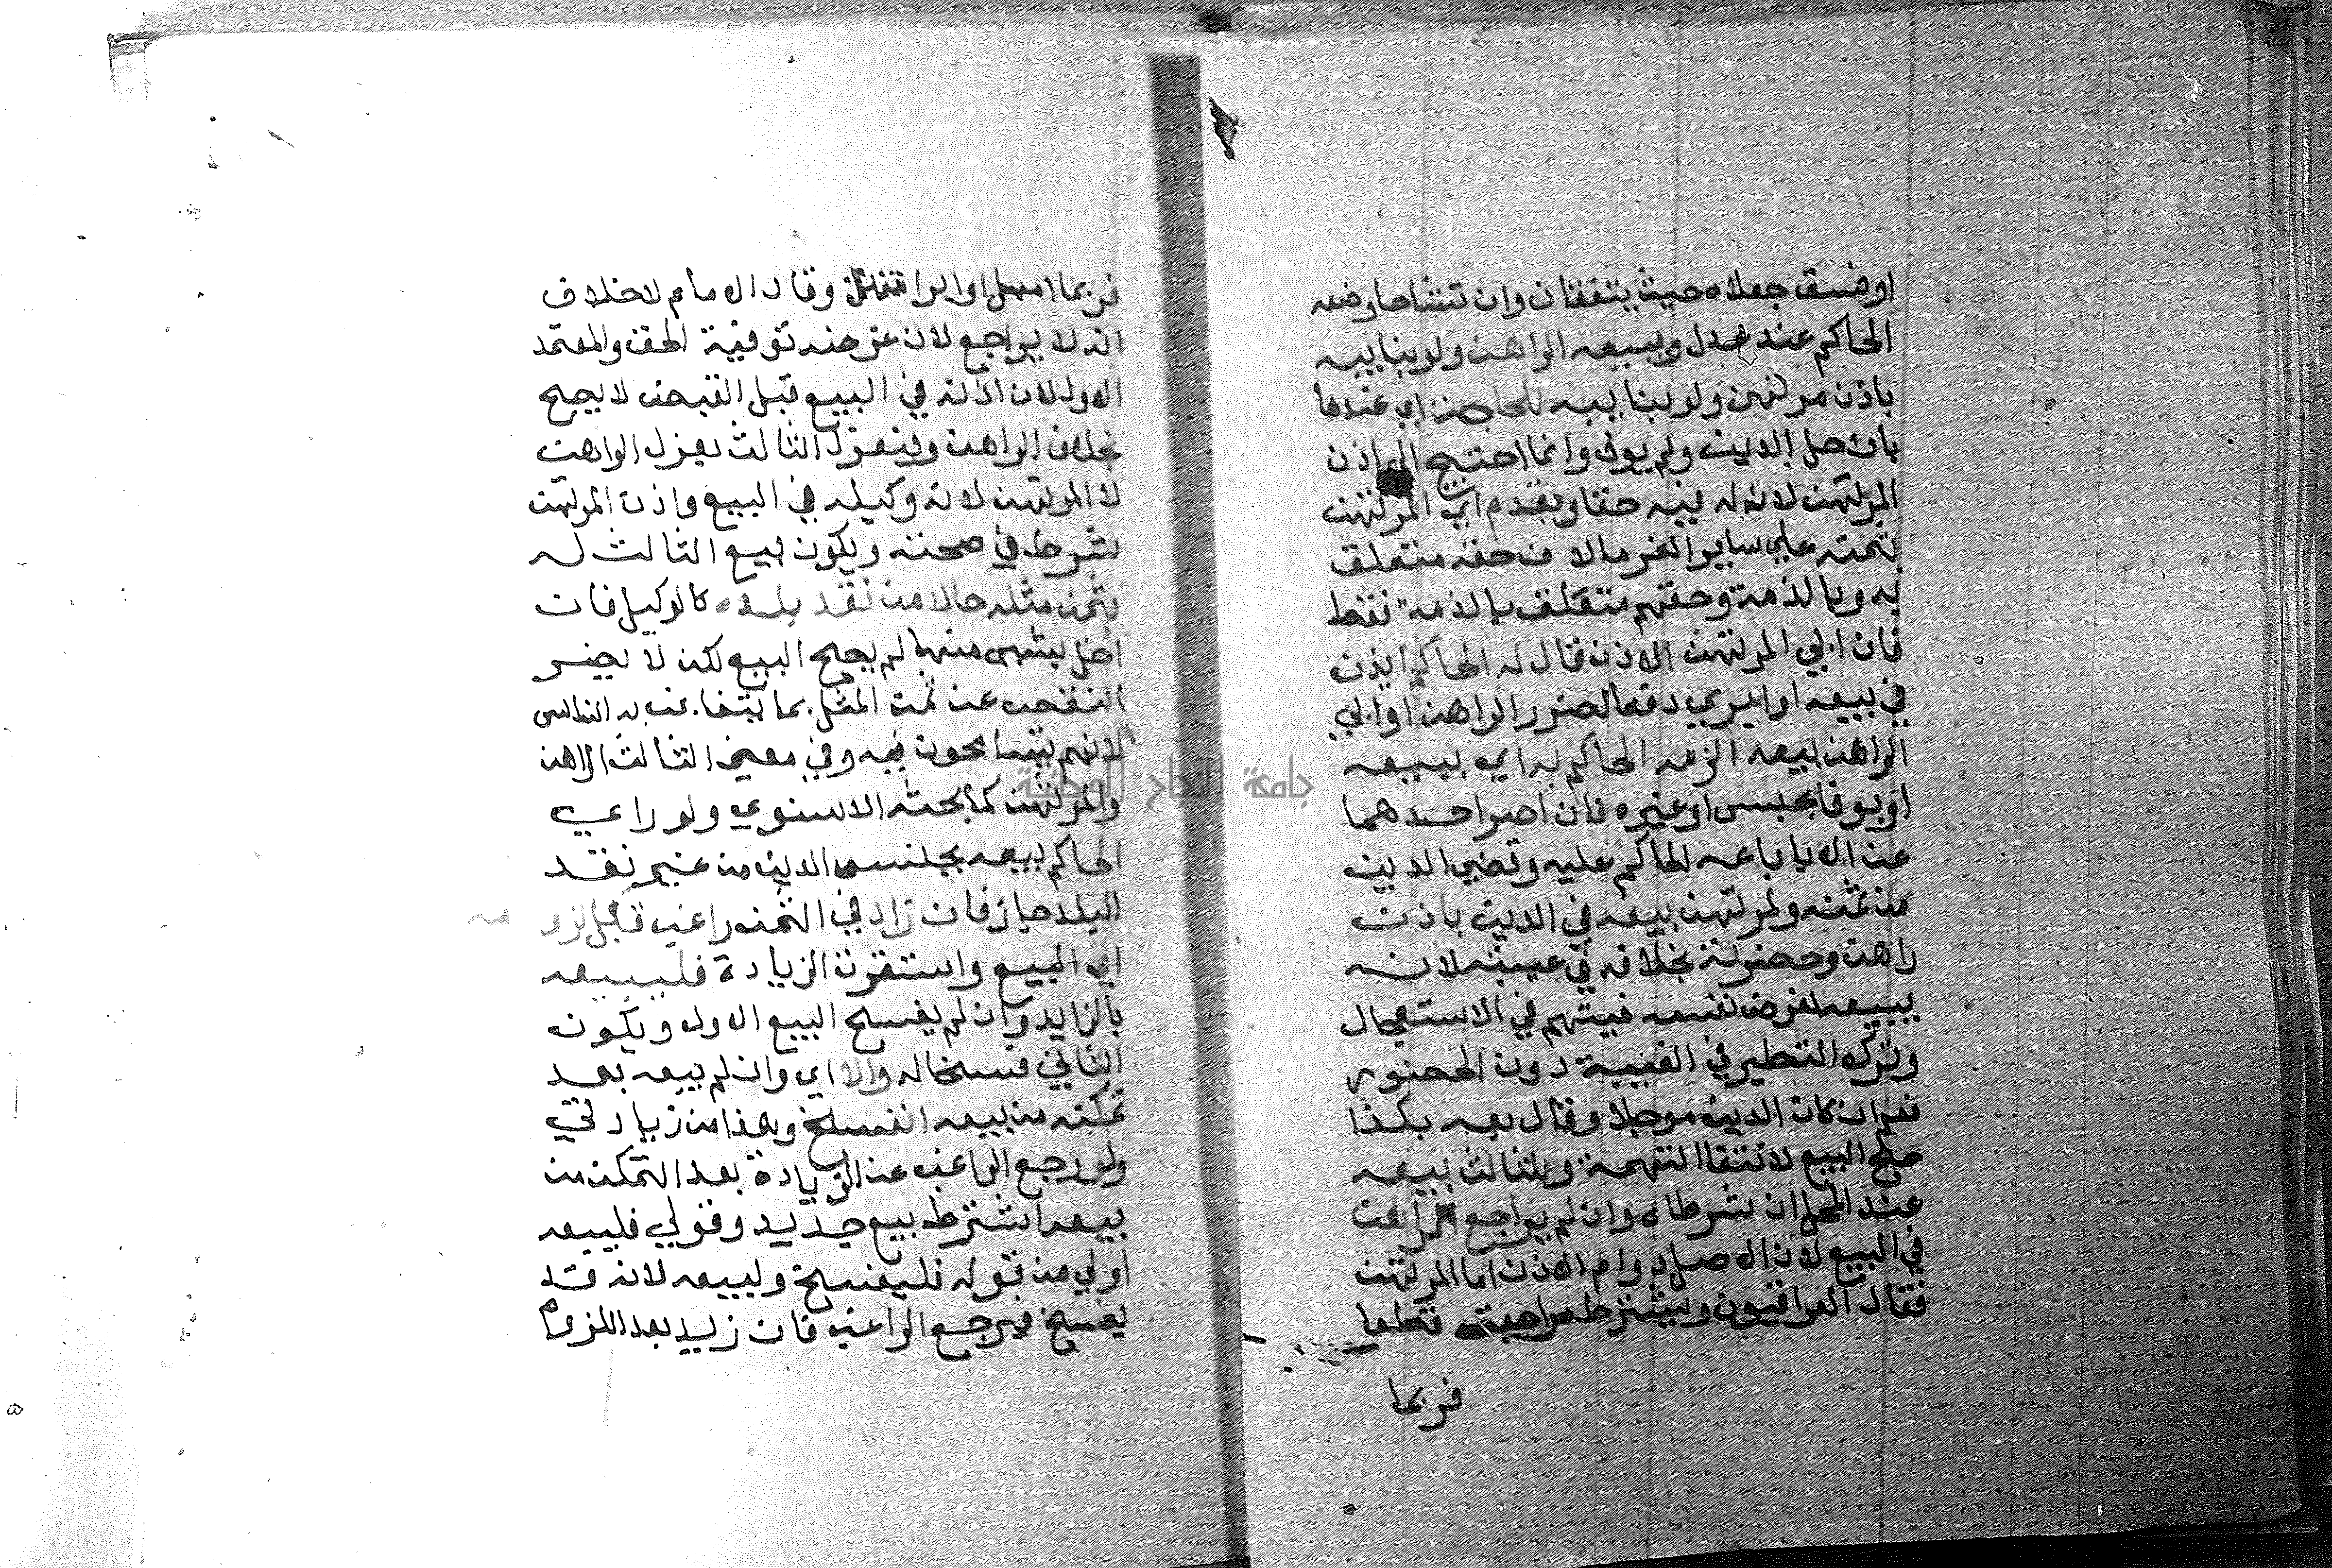 او فسق جعلاه حيث يتفقان وان تشاحا وضعه
الحاكم عند عدل ويبيعه الراهن ولو بنايبه
باذن مرتهن ولو بنايبه للحاجة اي عندها
بان حل الدين ولم يوف وانما احتيج الي اذن
المرتهن لان له فيه حقا ويقدم اي المرتهن
بثمنه علي ساير الغرما لان حقه متعلق
به وبالذمة وحقهم متعلق بالذمة فقط
فان ابي المرتهن الاذن قال له الحاكم ايذن
في بيعه او ابري دفعا لضرر الراهن او ابي
الراهن بيعه الزمه الحاكم به اي ببيعه
او بوفا بحبس او غيره فان اصر احدهما
عن الابا باعه الحاكم عليه وقضي الدين
من ثمنه ولمرتهن بيعه في الدين باذن
راهن وحضرته بخلافه في غيبته لانه
يبيعه لغرض نفسه فيتهم في الاستعجال
وترك النظر في الغيبة دون الحضور
نعم ان كان الدين موجلا وقال بعه بكذا
صح البيع لانتفا التهمة وللثالث بيعه
عند المحل ان شرطاه وان لم يراجع الراهن
في البيع لان الاصل دوام الاذن اما المرتهن
فقال العراقيون ويشترط مراجعته قطعا
فربما
فربما امهل او ابرا وقال الامام لا خلاف
انه لا يراجع لان غرضه توفية الحق والمعتمد
الاول لان اذنه في البيع قبل القبض لا يصح
بخلاف الراهن وينعزل الثالث بعزل الراهن
لا المرتهن لانه وكيله في البيع واذن المرتهن
شرط في صحته ويكون بيع الثالث له
بثمن مثله حالا من نقد بلده كالوكيل فان
اخل بشي منها لم يصح البيع لكن لا يضر
النقص عن ثمن المثل بما يتغابن به الناس
لانهم يتسامحون فيه وفي معني الثالث الراهن
والمرتهن كما بحثه الاسنوي ولو راي
الحاكم بيعه بجنس الدين من غير نقد
البلد جاز فان زاد في الثمن راغب قبل لزومه
اي البيع واستقرت الزيادة فليبيعه
بالزايد وان لم يفسخ البيع الاول ويكون
الثاني فسخا له والا اي وان لم يبعه بعد
تمكنه من بيعه انفسخ وهذا من زيادتي
ولو رجع الراغب عن الزيادة بعد التمكن من
بيعه اشترط بيع جديد وقولي فليبيعه
اولي من قوله فليفسخ وليبيعه لانه قد
يفسخ فيرجع الراغب فان زيد بعد اللزوم
جامعة النجاح الوطنية